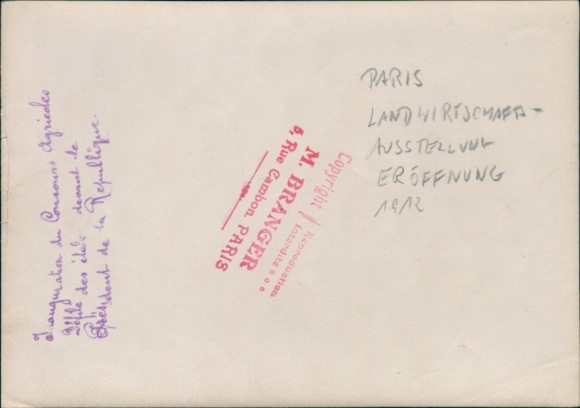 Inauguration du Concours Agricoles
Défilé des étalons devant le
Président de la République.
Copyright
Reproduction
Interdite
M. BRANGER
5, Rue Cambon. PARIS
PARIS
LANDWIRTSCHAFTS-
AUSSTELLUNG
ERÖFFNUNG
1912